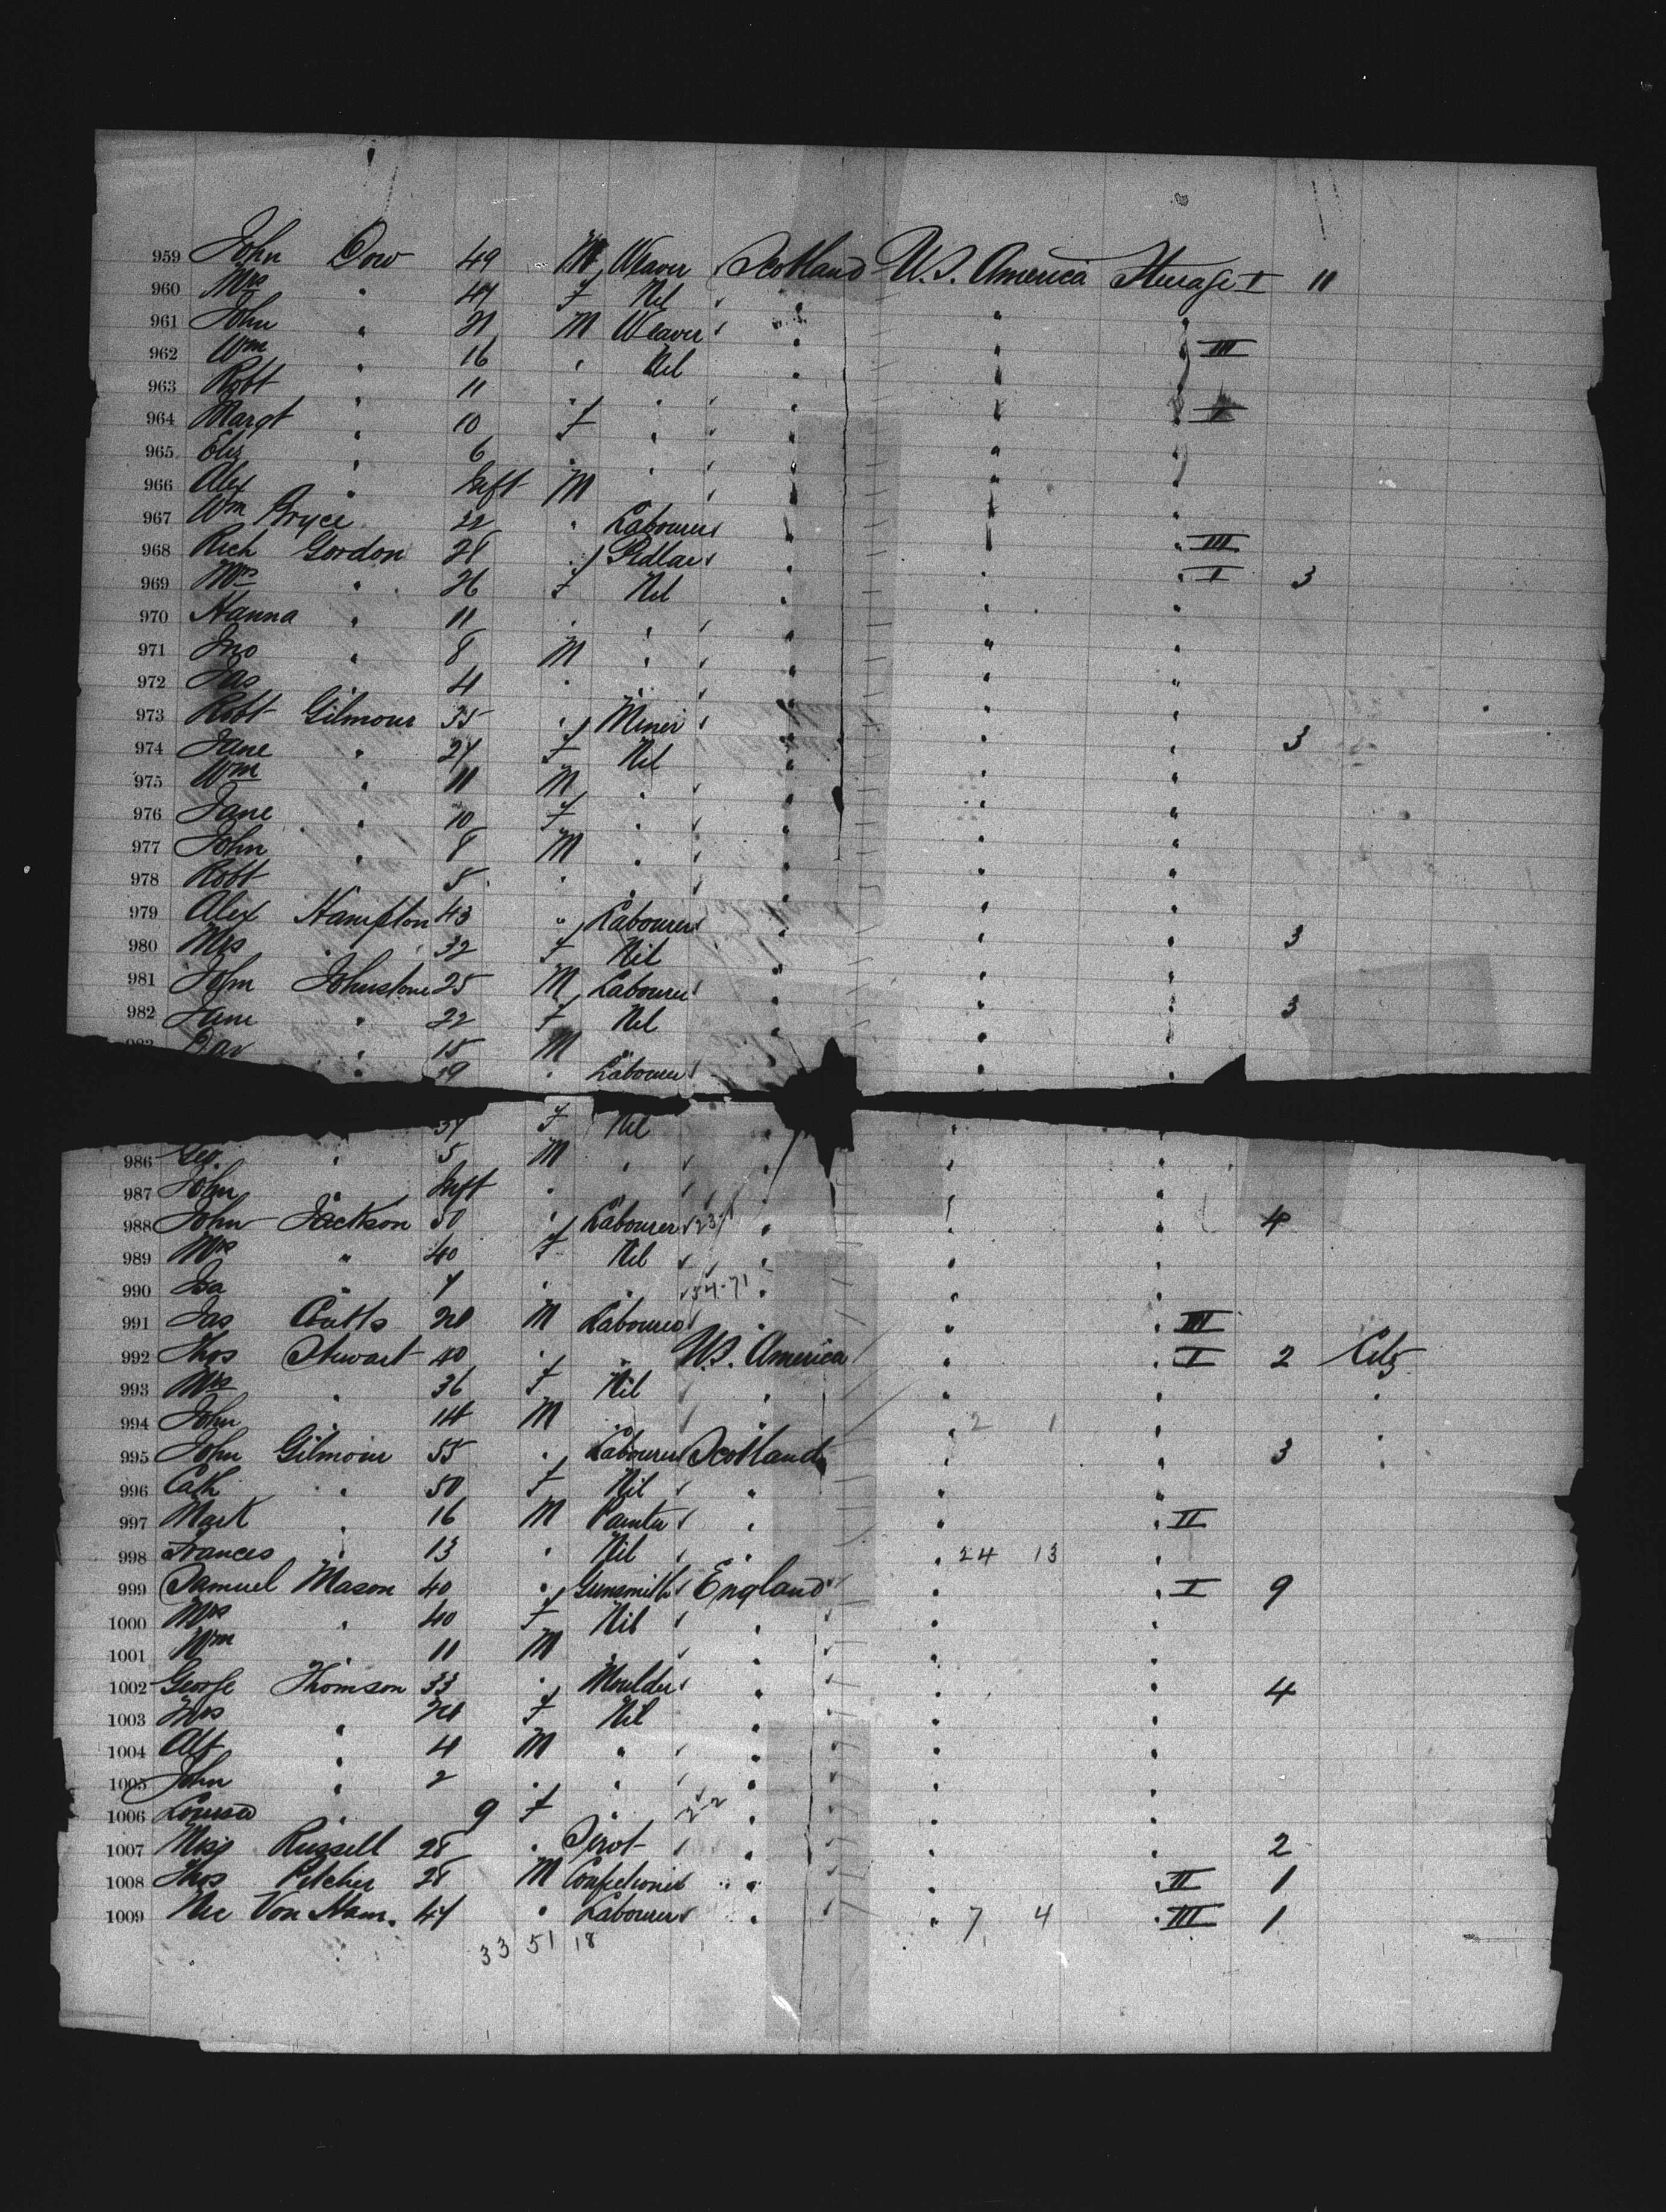 959 John Dow 49 M Weaver Scotland U.S. America Steerage I 11
960 Mrs " 47 F Nil " " "
961 John " 21 M Weaver " " " III
962 Wm " 16 " Nil " " "
963 Robt " 11 " " " " " I
964 Margt " 10 F " " " "
965 Eliz " 6 " " " " "
966 Alex " Inft M " " " "
967 Wm Bryce 22 " Labourer " " " III
968 Rich Gordon 28 " Pedlar " " " I 3
969 Mrs " 26 F Nil " " "
970 Hanna " 11 " " " " "
971 Jno " 8 M " " " "
972 Jas " 4 " " " " "
973 Robt Gilmour 35 " Miner " " " 3
974 Jane " 27 F Nil " " "
975 Wm " 11 M " " " "
976 Jane " 10 F " " " "
977 John " 8 M " " " "
978 Robt " 5 " " " " "
979 Alex Hampton 43 " Labourer " " " 3
980 Mrs " 32 F Nil " " "
981 John Johnstone 25 M Labourer " " " 3
982 Jane " 22 F Nil " " "
983 Dav " 15 M " " " "
" 39 " Labourer " "
37 F Nil " " "
986 Geo. " 5 M " " " "
987 John " Inft " " " "
988 John Jackson 50 " Labourer 23-1 " " " 4
989 Mrs " 40 F Nil " " "
990 Isa " 7 " " 54-71 " " "
991 Jas Coutts 20 M Labourer " " " III
992 Thos Stewart 40 " " U.S. America " " I 2 Citz
993 Mrs " 36 F Nil " " " "
994 John " 14 M " " " 2 1 " "
995 John Gilmour 55 " Labourer Scotland " " 3 "
996 Cath " 50 F Nil " " "
997 Mark " 16 M Painter " " " II
998 Frances " 13 " Nil " " 24 13 "
999 Samuel Mason 40 " Gunsmith England " " I 9
1000 Mrs " 40 F Nil " " "
1001 Wm " 11 M " " " "
1002 George Thomson 33 " Moulder " " " 4
1003 Mrs " 24 F Nil " " "
1004 Alf " 4 M " " " "
1005 John " 2 " " " " "
1006 Louisa " 9 F " 2-2 " " "
1007 Miss Russell 28 " Servt " " " 2
1008 Thos Pilcher 28 M Confectioner " " " II 1
1009 Von Ham. 47 " Labourer " " 7 4 " III 1
33 51 18